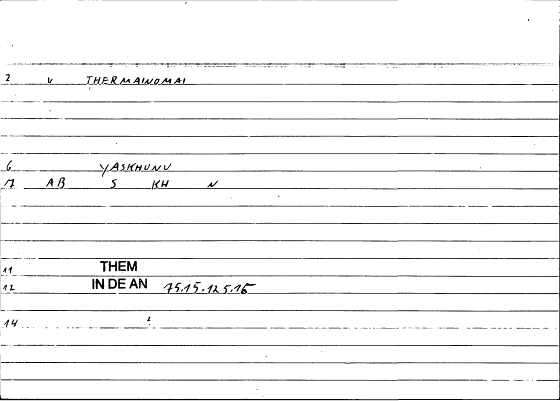 2 V THERMAINOMAI
6 YASKHUNU
17 AB S KH N
11 THEM
12 IN DE AN 15.15.12 5.15
14 2